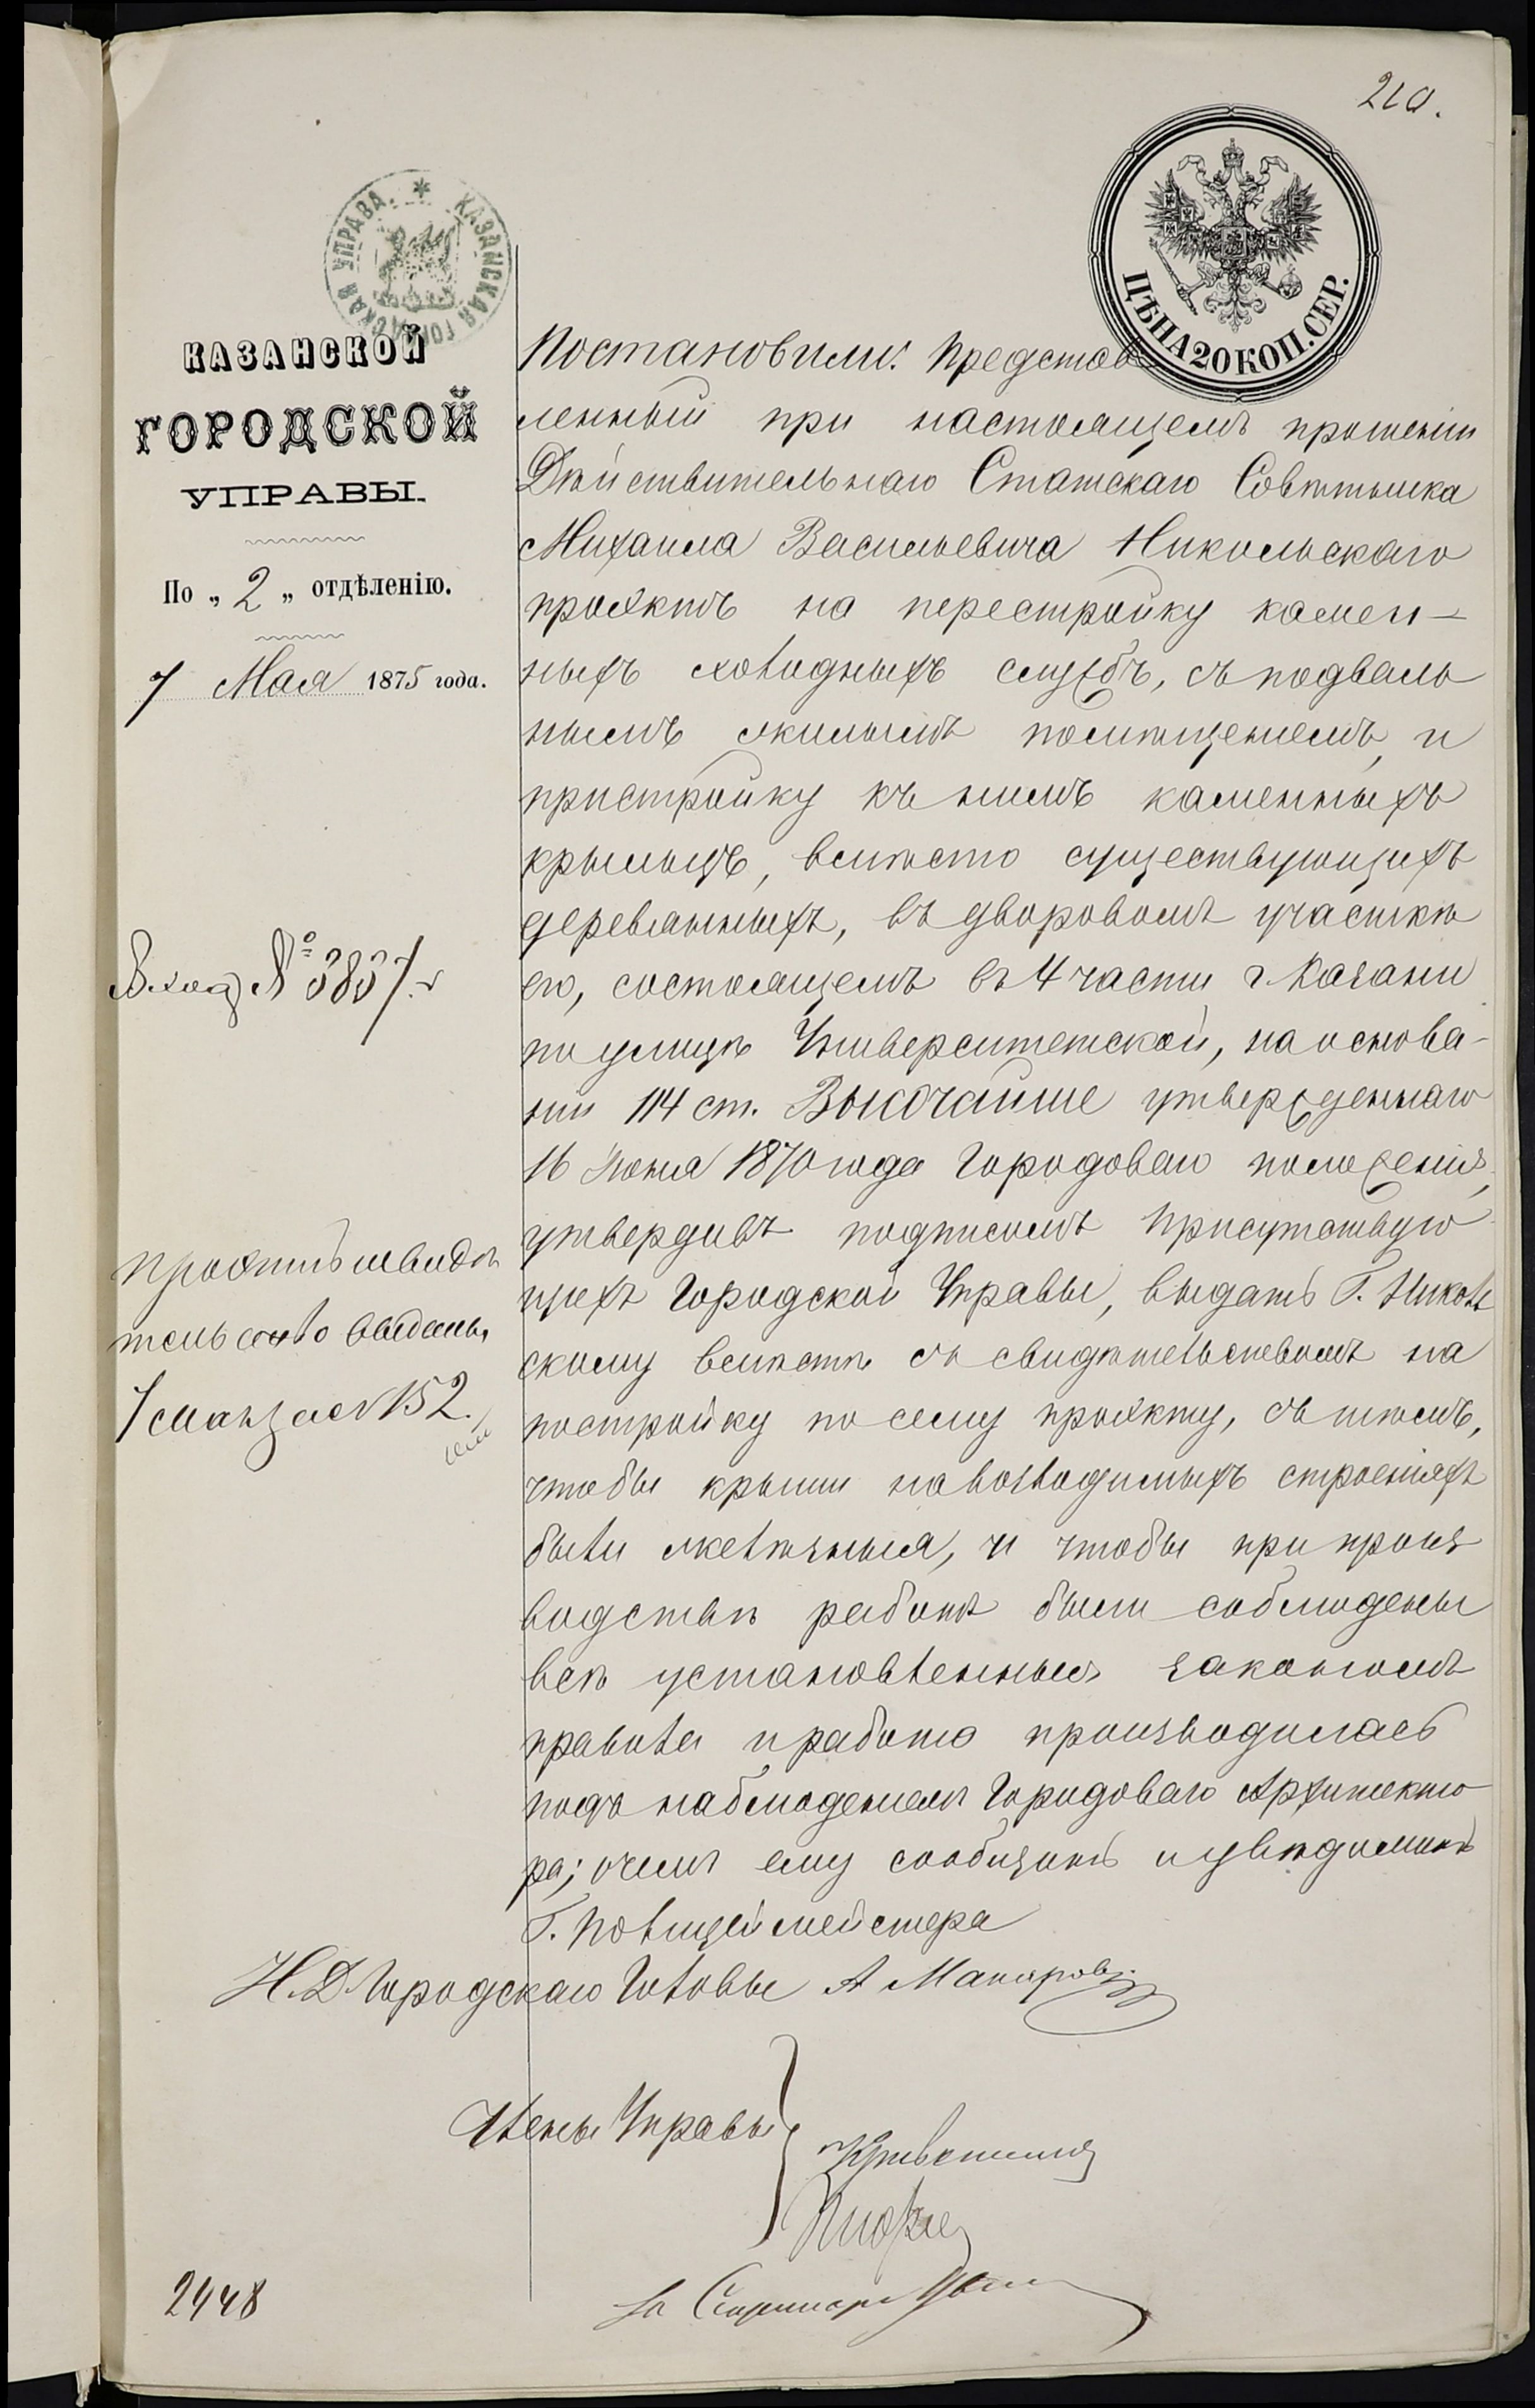 210.
КАЗАНСКАЯ ГОРОДСКАЯ УПРАВА
ЦѢНА 20 КОП. СЕР.
КАЗАНСКОЙ
ГОРОДСКОЙ
УПРАВЫ.
По „ 2 „ отдѣленію.
7 Мая 1875 года.
Вход № 3837.
Проэктъ и свидѣ
тельство выданы
7 мая за № 152.
Постановили: Представ
ленный при настоящемъ прошеніи
Дѣйствительнаго Статскаго Совѣтника
Михаила Васильевича Никольскаго
проэктъ на перестройку камен-
ныхъ холодныхъ службъ, съ подваль
нымъ жилымъ помѣщеніемъ, и
пристройку къ нимъ каменныхъ
крылецъ, вмѣсто существующихъ
деревянныхъ, въ дворовомъ участкѣ
его, состоящемъ въ 4 части г. Казани
по улицѣ Университетской, на основа-
ніи 114 ст. Высочайше утвержденнаго
16 Іюня 1870 года Городоваго положенія,
утвердивъ подписомъ присутствую
щихъ Городской Управы, выдать Г. Николь
скому вмѣстѣ съ свидѣтельствомъ на
постройку по сему проэкту, съ тѣмъ,
чтобы крыши на возводимыхъ строеніяхъ
были желѣзныя, и чтобы при произ
водствѣ работъ были соблюдены
всѣ установленныя закономъ
правила и работа производилась
подъ наблюденіемъ Городоваго Архитекто
ра; о чемъ ему сообщить и увѣдомить
Г. Полицеймейстера
И. Д. Городскаго Головы А Макаров
Члены Управы
За Секретаря
2448